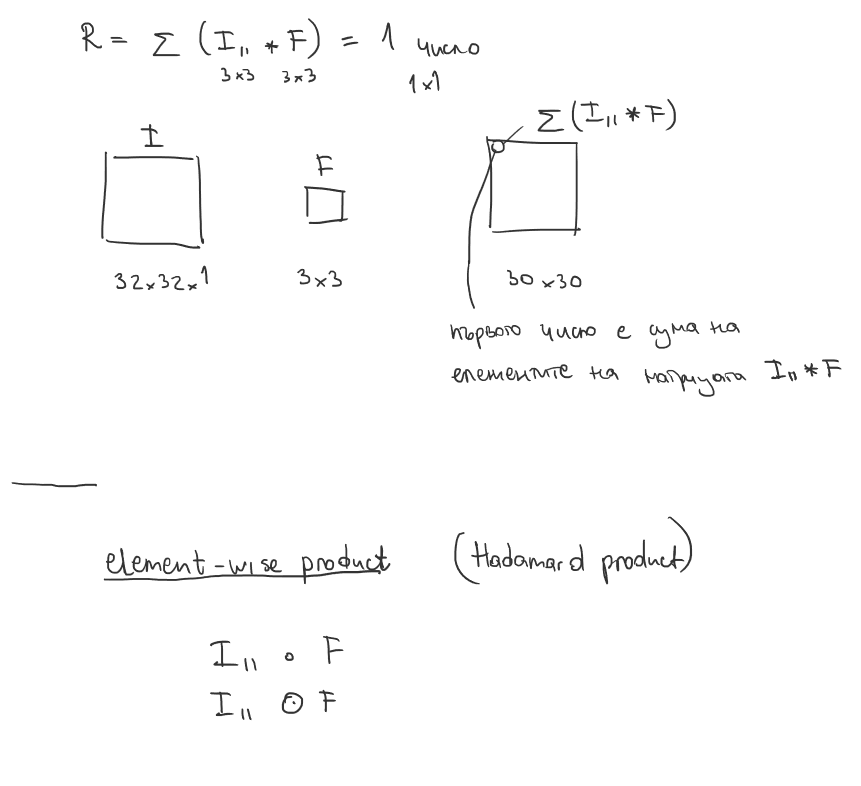 R = Σ (I₁₁ * F) = 1 число
3×3 3×3 1×1
Σ(I₁₁ * F)
I F
32×32×1 3×3 30×30
първото число е сума на
елементите на матрицата I₁₁ * F
element-wise product (Hadamard product)
I₁₁ ∘ F
I₁₁ ⊙ F